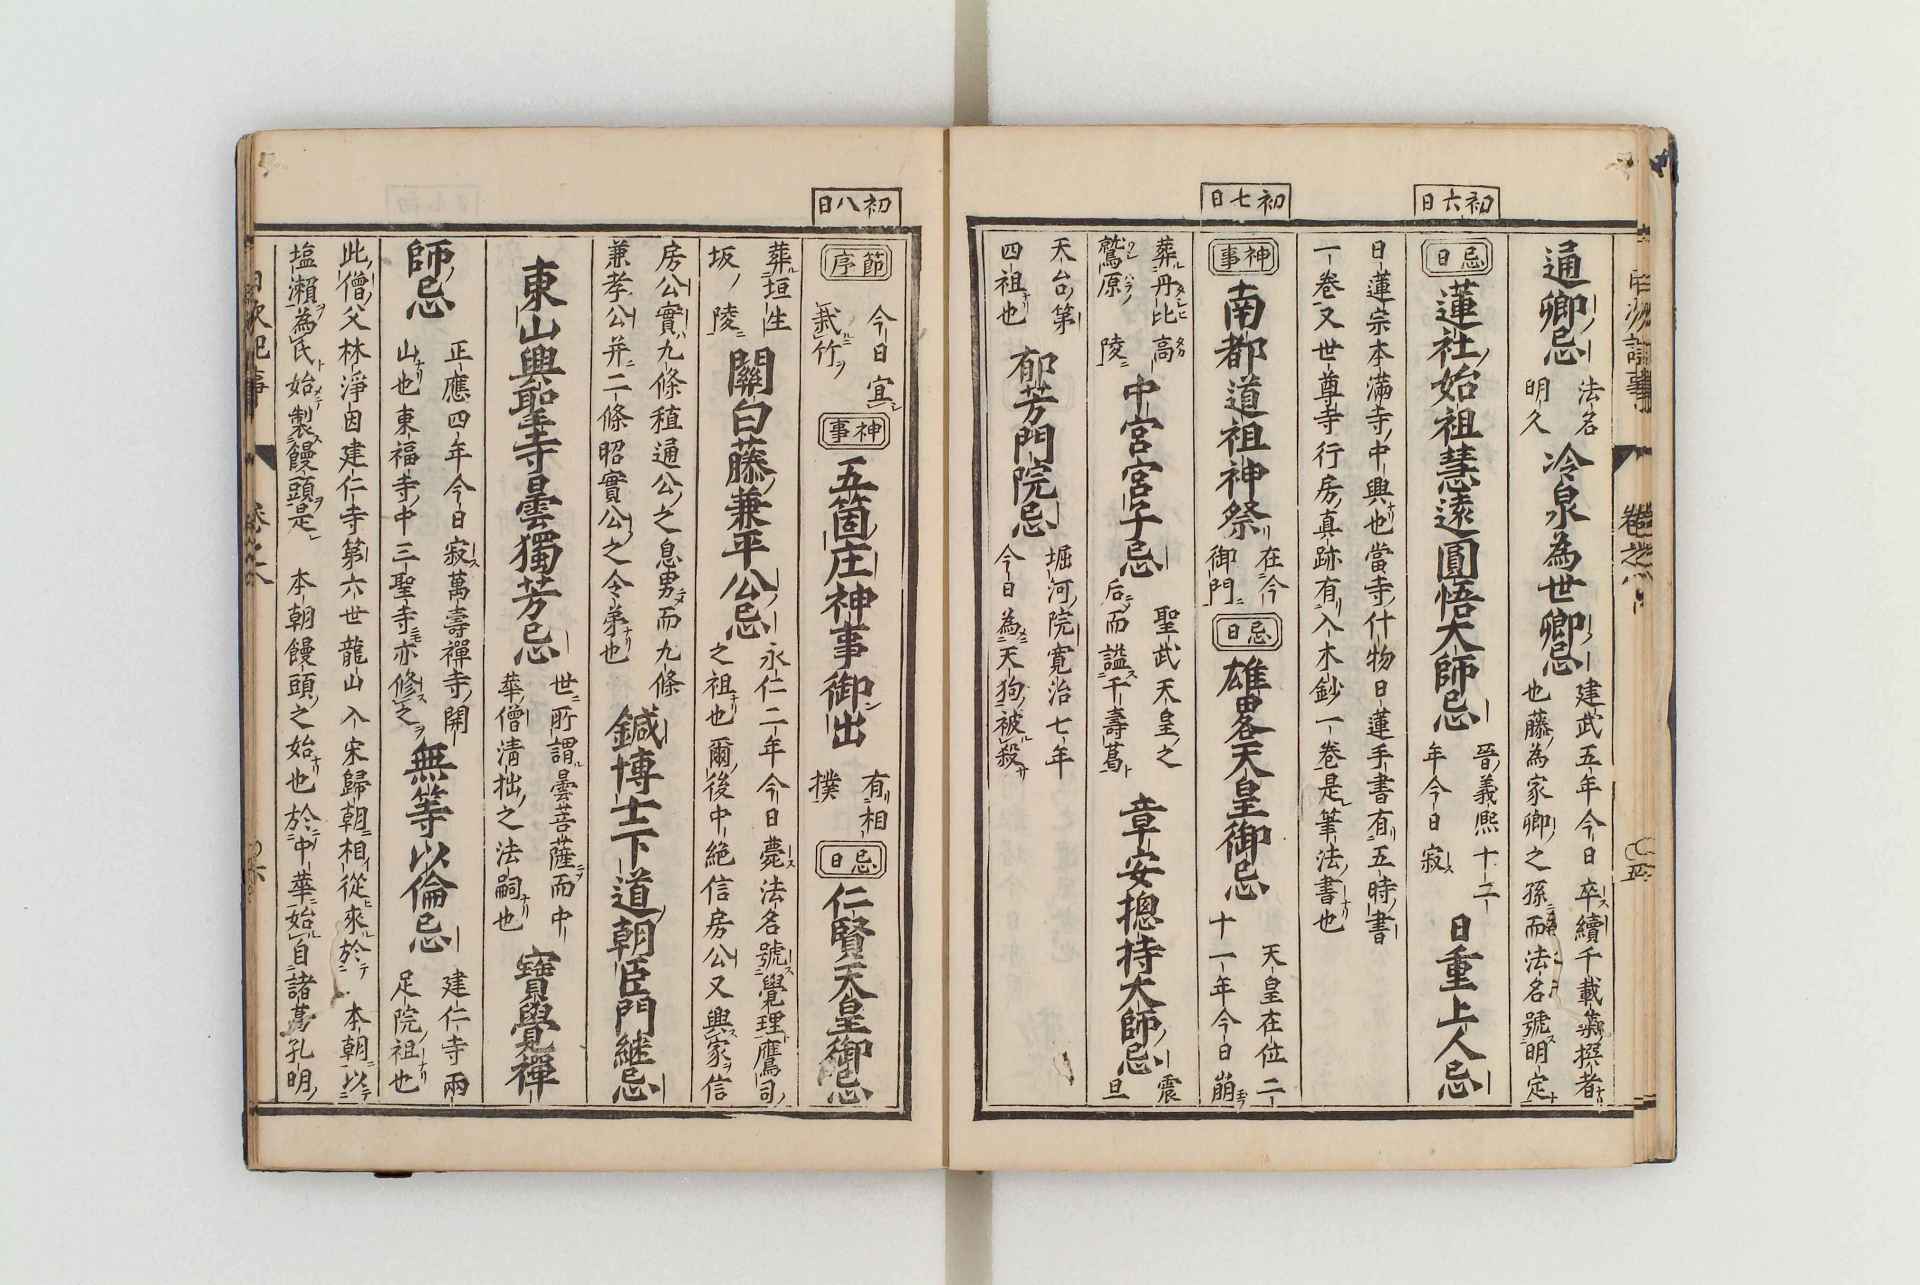 初六日
初七日
通卿忌 法名明久 冷泉為世卿忌 建武五年今日卒續千載集撰者也藤為家卿之孫而法名號明定
忌日 蓮社始祖慧遠圓悟大師忌 晉義熙十二年今日寂 日重上人忌
日蓮宗本滿寺中興也當寺什物日蓮手書有五時書
一卷又世尊寺行房真跡有入木鈔一卷是筆法書也
神事 南都道祖神祭 在今御門 忌日 雄畧天皇御忌 天皇在位二十一年今日崩
葬丹比高鷲原陵 中宮宮子忌 聖武天皇之后而謚千壽葛 章安摠持大師忌 震旦
天台第四祖也 郁芳門院忌 堀河院寛治七年今日為天狗被殺
初八日
節序 今日宜栽竹 神事 五箇庄神事御出 有相撲 忌日 仁賢天皇御忌
葬垣生坂陵 關白藤兼平公忌 永仁二年今日薨法名號覺理鷹司之祖也爾後中絶信房公又興家信
房公實九條稙通公之息男而九條
兼孝公并二條昭實公之令弟也 鍼博士下道朝臣門継忌
東山興聖寺曇獨芳忌 世所謂曇菩薩而中華僧清拙之法嗣也 寶覺禪
師忌 正應四年今日寂萬壽禪寺開山也東福寺中三聖寺亦修之 無等以倫忌 建仁寺兩足院祖也
此僧父林淨因建仁寺第六世龍山入宋歸朝相從來於本朝以
塩瀬為氏始製饅頭是本朝饅頭之始也於中華始自諸葛孔明
日次紀事 卷之六